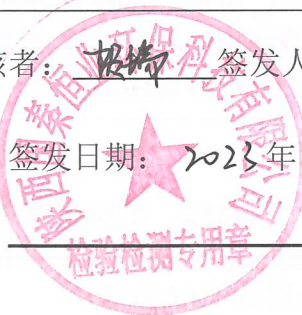 核者: 签发人
签发日期: 2023年
陕西秦恒业环保科技有限公司
检验检测专用章